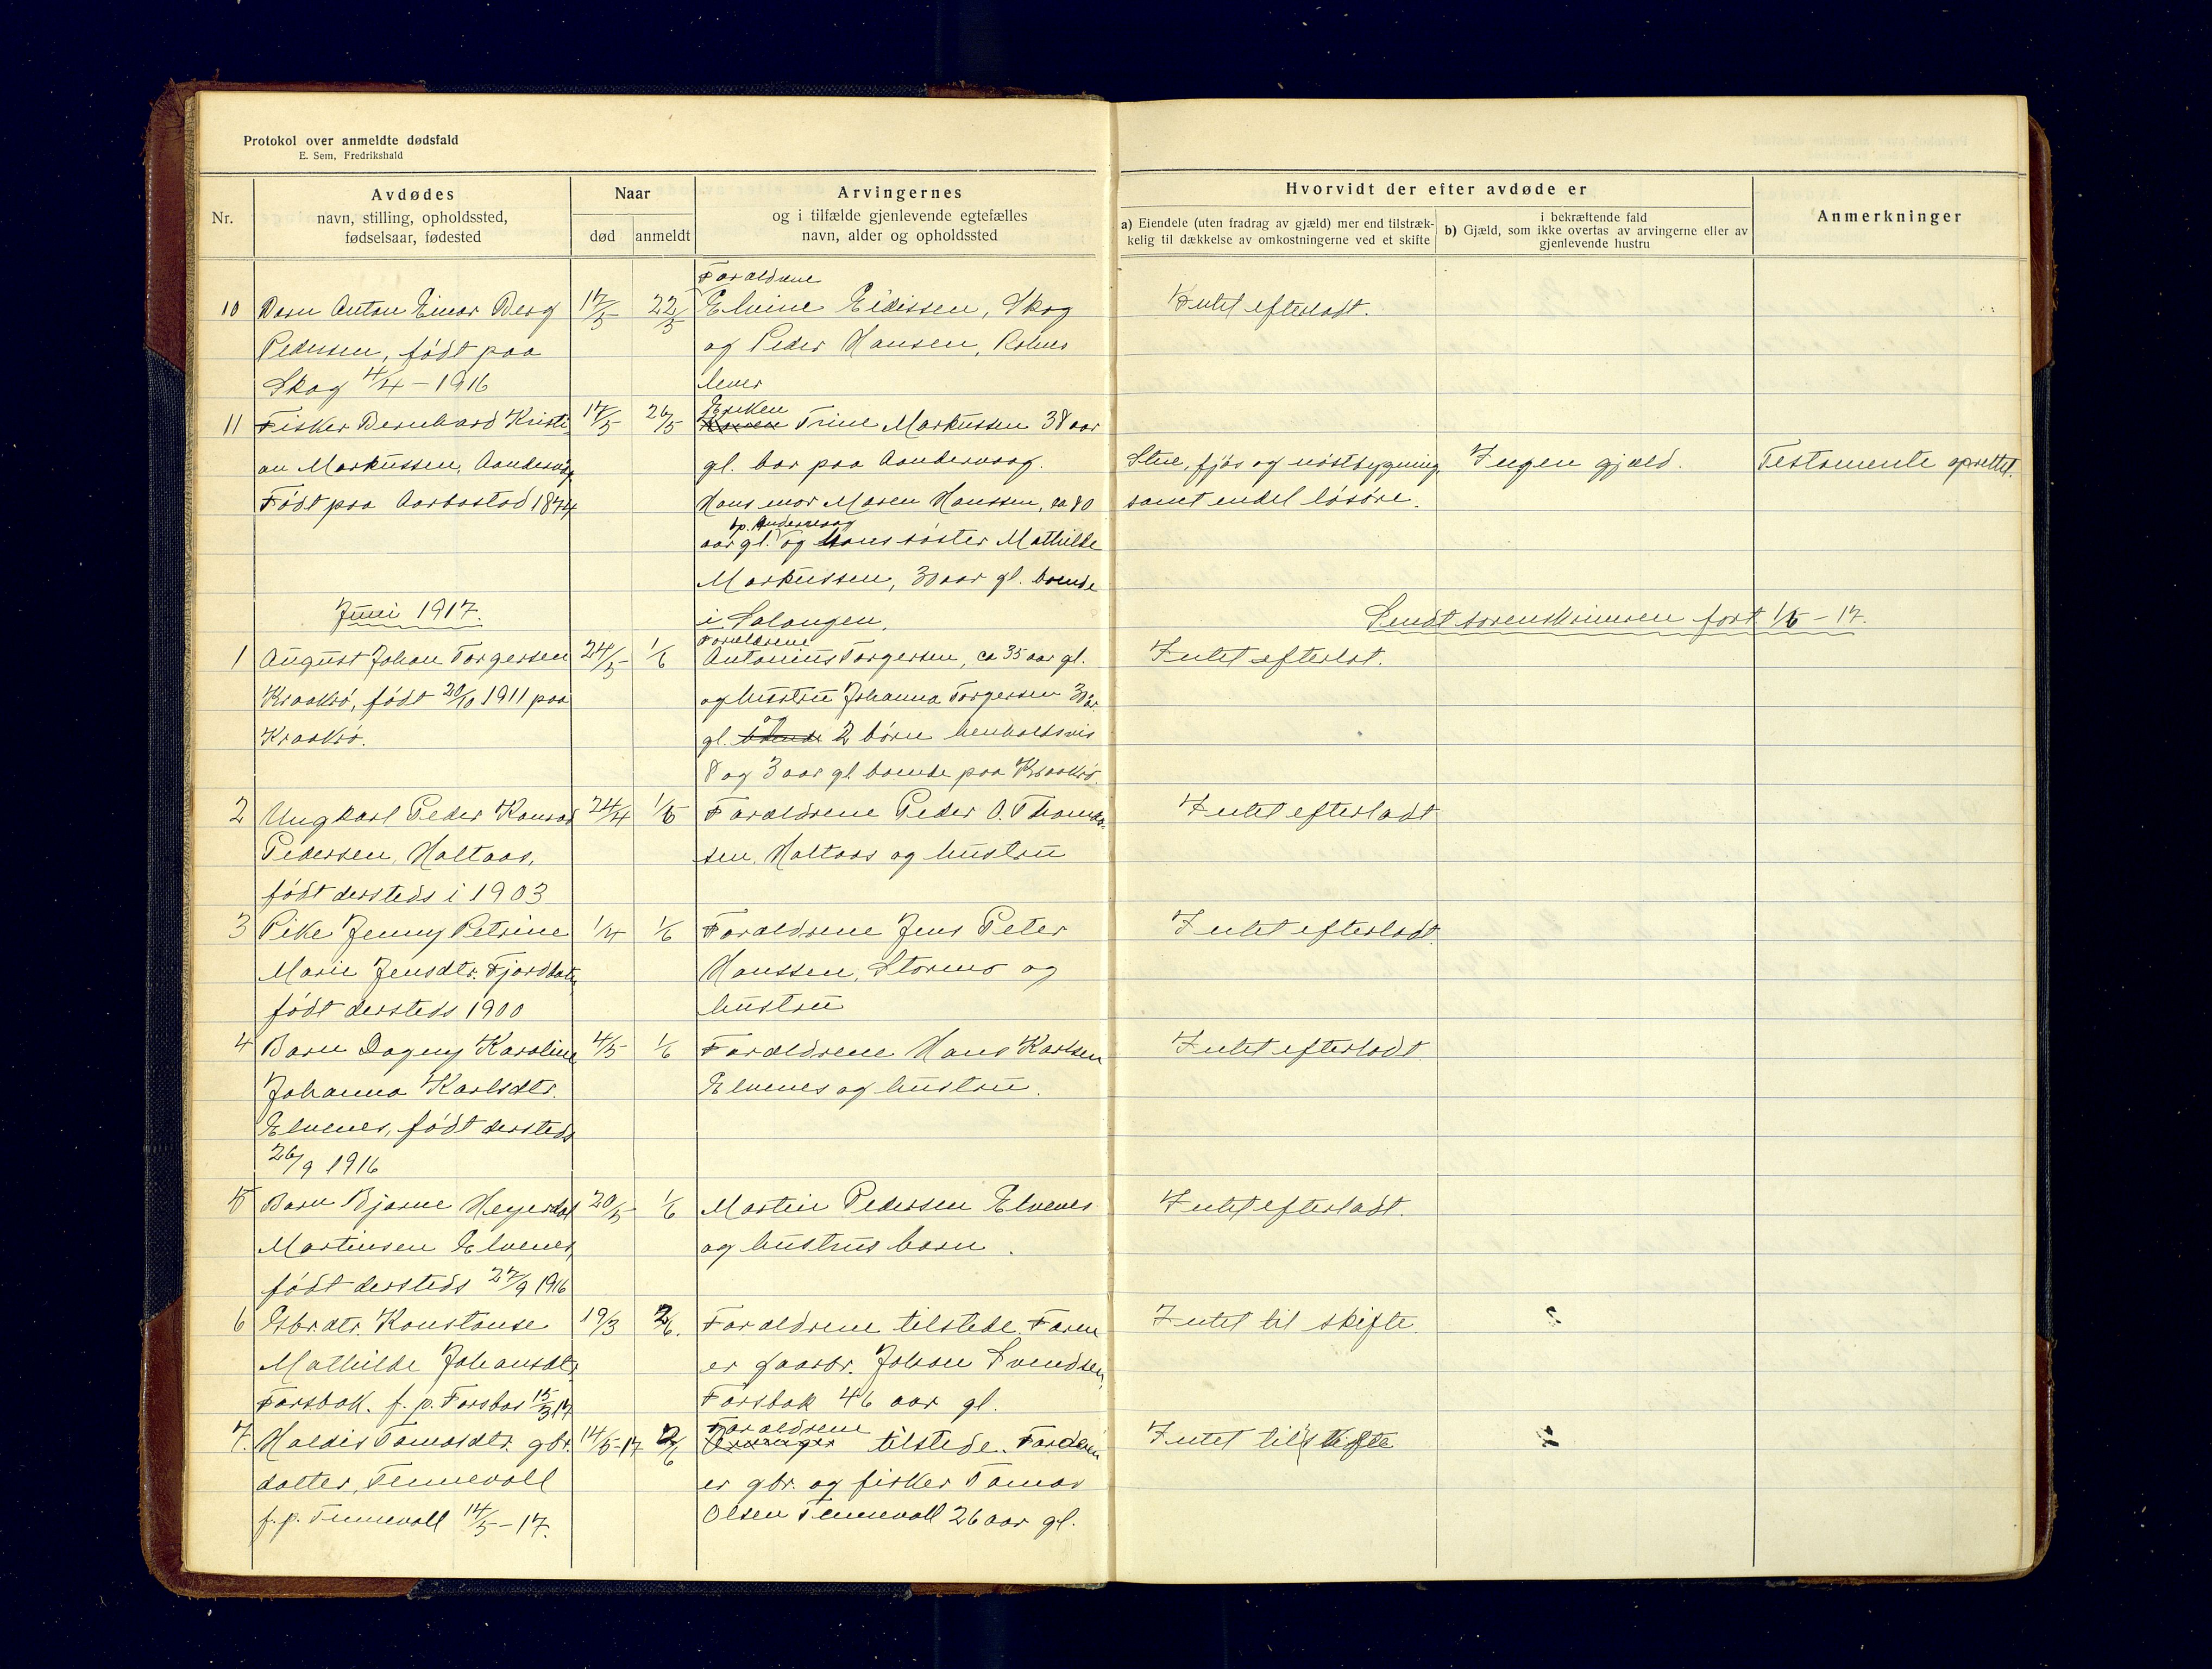 Protokol over anmeldte dødsfald
E. Sem, Fredrikshald
Nr.
Avdødes
navn, stilling, opholdssted,
fødselsaar, fødested
Naar
død
anmeldt
Arvingernes
og i tilfælde gjenlevende egtefælles
navn, alder og opholdssted
Hvorvidt der efter avdøde er
a) Eiendele (uten fradrag av gjæld) mer end tilstræk-
kelig til dækkelse av omkostningerne ved et skifte
i bekræftende fald
b) Gjæld, som ikke overtas av arvingerne eller av
gjenlevende hustru
Anmerkninger
Forældrene
10 Barn Anton Einar Berg 17/5 22/5 Elvine Eidissen, Skog Intet efterladt.
Pedersen, født paa og Peder Hansen,
Skog 4/4 - 1916
Enken
11 Fisker Bernhard Kristi- 17/5 26/5 Trine Markussen 38 aar
an Markussen, Aandervåg gl. bor paa Aandervaag. Stue, fjøs og nøstbygning, Ingen gjæld. Testamente oprettet.
Født paa Aarbostad 1874 Hans mor Maren Hanssen, ca 80 samt endel løsøre.
bp. Andervaag
aar gl. og hans søster Mathilde
Markussen, 30 aar gl. boende
Juni 1917. i Salangen. Sendt sorenskriveren fort. 1/6 - 17.
Forældrene
1 August Johan Torgersen 24/5 1/6 Antonius Torgersen, ca 35 aar gl. Intet efterlat.
Kraakrø, født 20/10 1911 paa og hustru Johanna Torgersen 30 aar
Kraakrø. gl. og 2 børn henholdsvis
8 og 3 aar gl boende paa Kraakrø.
2 Ungkarl Peder Konrad 24/4 1/6 Forældrene Peder O. Thomas- Intet efterladt
Pedersen, Haltaas, sen, Haltaas og hustru
født dersteds i 1903
3 Pike Jenny Petrine 1/4 1/6 Forældrene Jens Peter Intet efterladt.
Marie Jensdtr. Fjordbotn Hanssen, Stormo og
født dersteds 1900 hustru
4 Barn Dagny Karoline 4/5 1/6 Forældrene Hans Karlsen Intet efterladt.
Johanna Karlsdtr. Elvenes og hustru.
Elvenes, født dersteds
26/9 1916
5 Barn Bjarne Heyerdal 20/5 1/6 Martin Pedersen Elvenes Intet efterladt.
Martinsen Elvenes, og hustrus barn.
født dersteds 27/9 1916
6 Gbr.dtr. Konstanse 19/3 2/6. Forældrene tilstede. Faren Intet til skifte.
Mathilde Johansdtr. er gaarbr. Johan Svendsen,
Forsbak. f. p. Forsbak 15/3 17 Forsbak 46 aar gl.
Forældrene
7. Haldis Tomasdtr. gbr. 14/5-17 2/6 tilstede. Faderen Intet til skifte
datter, Tennevoll er gbr. og fisker Tomas
f. p. Tennevoll 14/5 - 17. Olsen Tennevoll 26 aar gl.